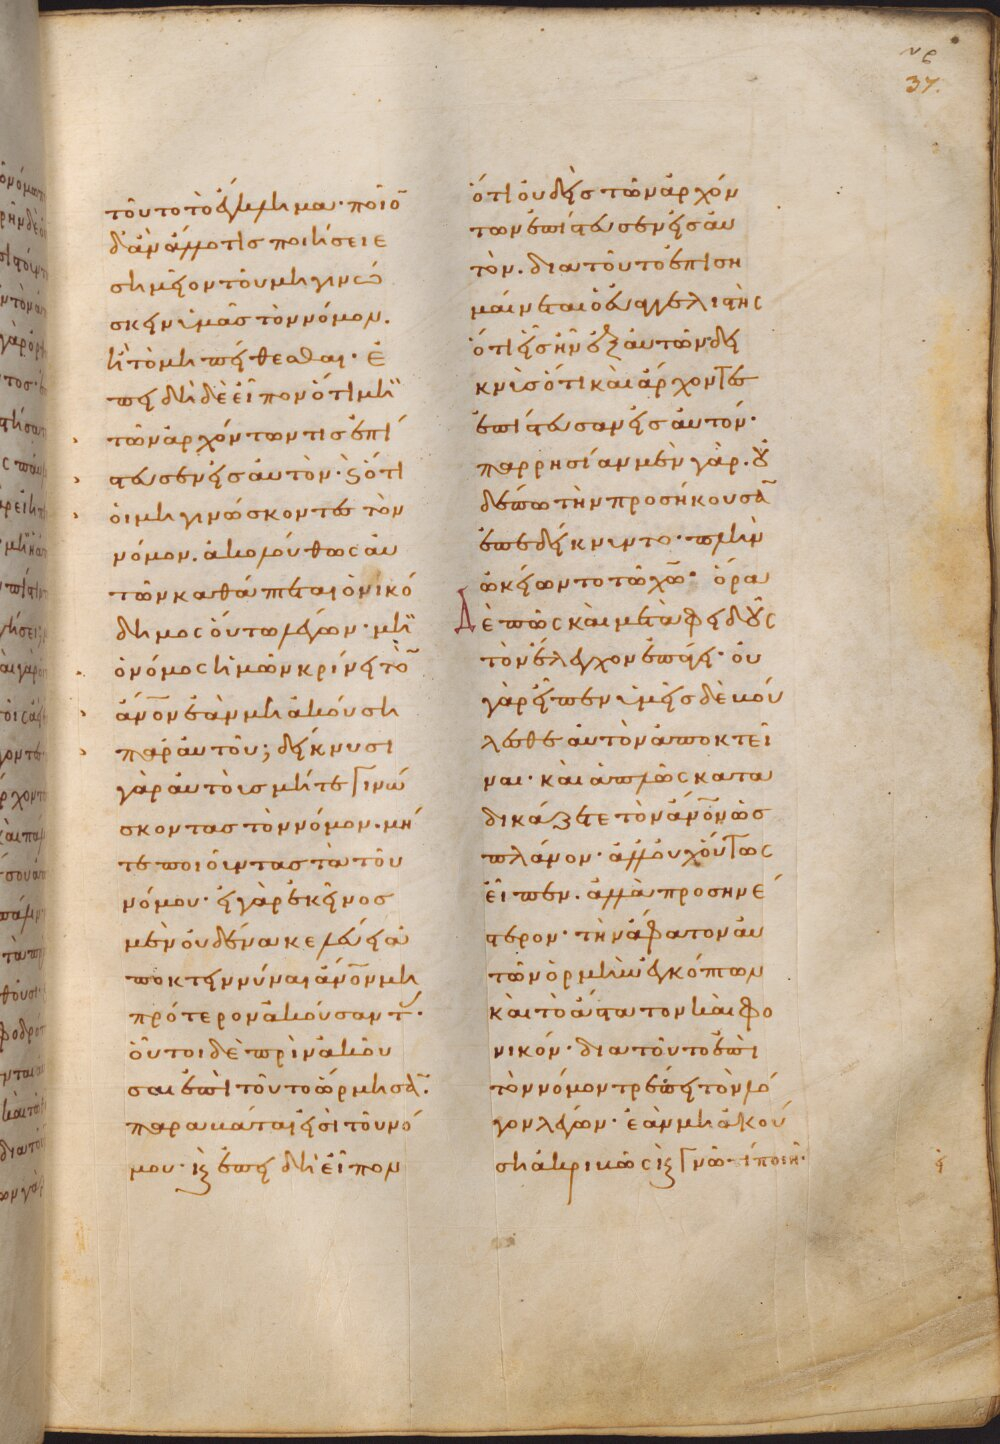 νε
37.
τοῦτο τὸ ἔγκλημα· ποῖο̅
δ' ἂν ἄλλό τις ποιήσειε
σημεῖον τοῦ μὴ γινώ
σκειν ὑμᾶς τὸν νόμον.
ἢ τὸ μὴ πείθεσθαι· ἐ
πειδὴ δὲ εἶπον ὅτι μὴ
τῶν ἀρχόντων τὶς ἐπί
στευσεν εἰς αὐτὸν· ϗ ὅτι
οἱ μὴ γινώσκοντες τὸν
νόμον. ἀκολούθως αὐ
τῶν καθάπτεται ὁ νικό
δημος οὕτω λέγων· μὴ
ὁ νόμος ἡμῶν κρίνει το̅
ἄν̅ο̅ν ἐὰν μὴ ἀκούση
παρ' αὐτοῦ; δείκνυσι
γὰρ αὐτοὺς μήτε γινώ
σκοντας τὸν νόμον. μή
τε ποιοῦντας τὰ τοῦ
νόμου· εἰ γὰρ ἐκεῖνος
μὲν οὐδένα κελεύει ἀ
ποκτεννύναι ἄν̅ο̅ν μὴ
πρότερον ἀκούσαντ(ας)·
οὗτοι δὲ πρὶν ἀκοῦ
σαι ἐπὶ τοῦτο ὥρμησα̅.
παραβάται εἰσὶ τοῦ νό
μου· ϗ ἐπειδὴ εἶπον
ὅτι οὐδεὶς τῶν ἀρχόν
των ἐπίστευσεν εἰς αὐ
τὸν. διατοῦτο ἐπιση
μαίνεται ὁ εὐαγγελιστὴς
ὅτι εἷς ἦν ἐξ αὐτῶν· δει
κνὺς ὅτι καὶ ἄρχοντες
ἐπίστευσαν εἰς αὐτόν·
παρρησίαν μὲν γὰρ. οὐ
δέπω τὴν προσήκουσα̅
ἐπεδείκνυντο· πλὴν
ὠκειῶντο τῶ χ̅ω̅· ὅρα
Δὲ πῶς καὶ μετὰ φειδοῦς
τὸν ἔλεγχον ἐποίει· οὐ
γὰρ εἶπεν ὑμεῖς δὲ βού
λεσθε αὐτὸν ἀποκτεῖ
ναι· καὶ ἁπλῶς κατα
δικάζετε τὸν ἄν̅ο̅ν ὡς
πλάνον· ἀλλ' οὐχ οὕτως
εἶπεν. ἀλλὰ προσηνέ
στερον· τὴν ἄφατον αὐ
τῶν ὁρμὴν ἐγκόπτων
καὶ τὸ ἄτακτον καὶ φο
νικόν· διατοῦτο ἐπὶ
τὸν νόμον τρέπει τὸν λό
γον λέγων· ἐὰν μὴ ἀκού
ση ἀκριβῶς ϗ γνῶ τί ποιεῖ·